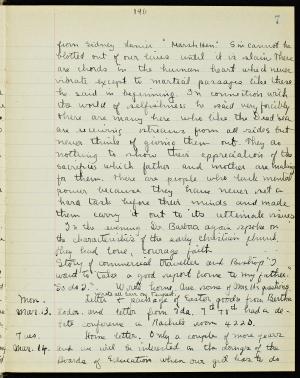 190
7
from Sidney Lanier "Marsh Hen". Sin cannot be
blotted out of our lives until it is slain. There
are chords in the human heart which never
vibrate except to martial passages like these
he said in beginning. In connection with
its world of selfishness he said very forcibly
there are many here who like the Dead Sea
are receiving streams from all sides but
never think of giving them out. They do
nothing to show their appreciation of the
sacrifices which father and mother are making
for them. There are people who lack mental
power because they have never set a
hard task before their minds and made
them carry it out to its ultimate issues.
In the evening Dr. Barbour again spoke on
the characteristics of the early Christian church,
they had love, courage faith.
Story of commercial traveller and Bishop "I
want to take a good report home to my father."
"So do I." Wrote home
Mon. Letter & package of Easter goods from Bertha
Mar. 13. and letter from Ida. 7th & 8th had a
conference in Rachel's room 4220.
Tues. Home letter. Only a couple of more years
Mar. 14. and we will be interested in the changes of the
Boards of Education when our girl has to do